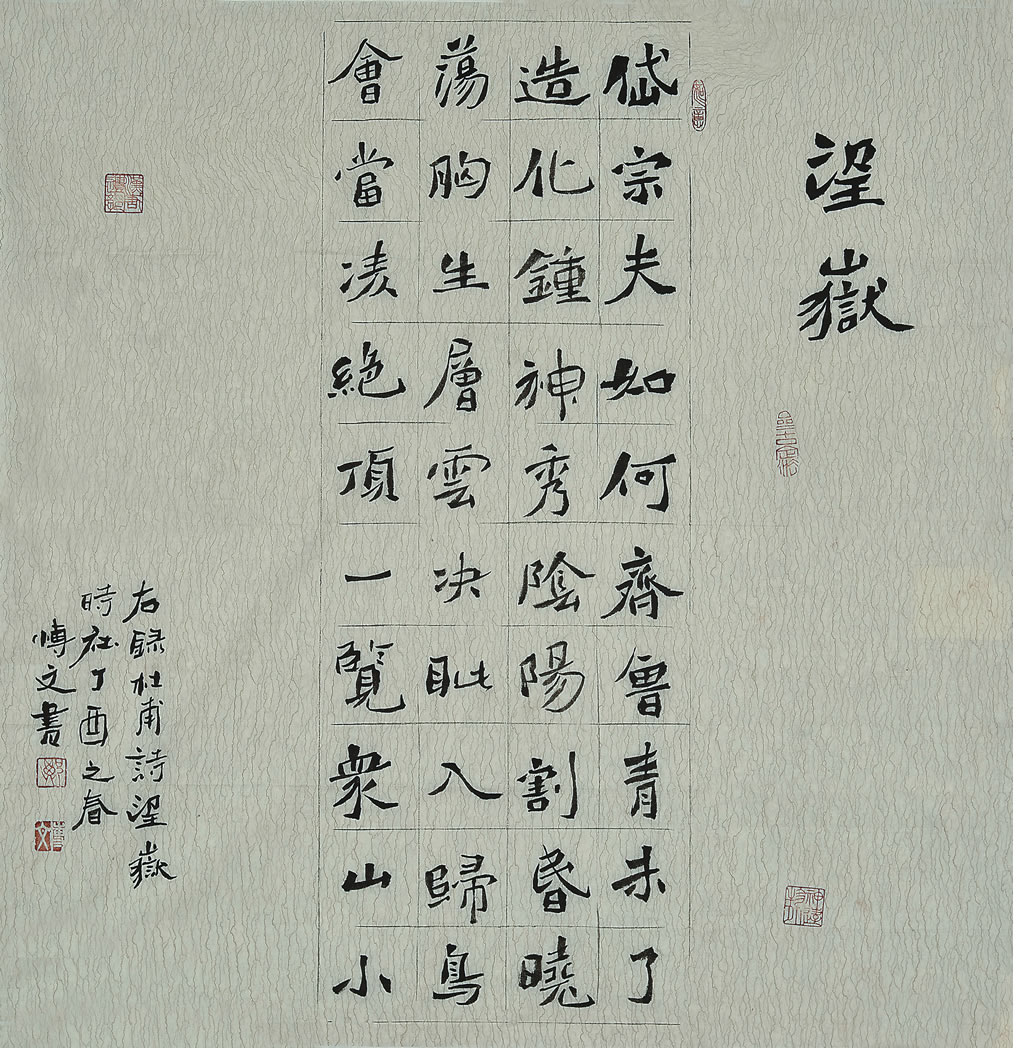 望嶽
岱宗夫如何齊魯青未了
造化鍾神秀陰陽割昏曉
蕩胸生層雲决眥入歸鳥
會當凌絕頂一覽衆山小
右録杜甫詩望嶽
時在丁酉之春
博文書